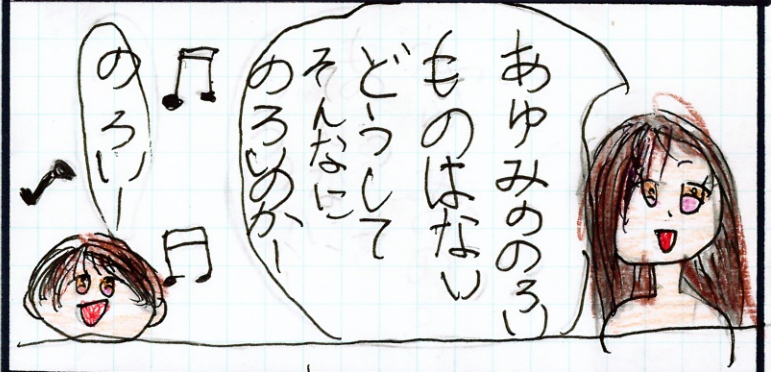 あゆみののろい
ものはない
どうして
そんなに
のろいのかー
のろいー